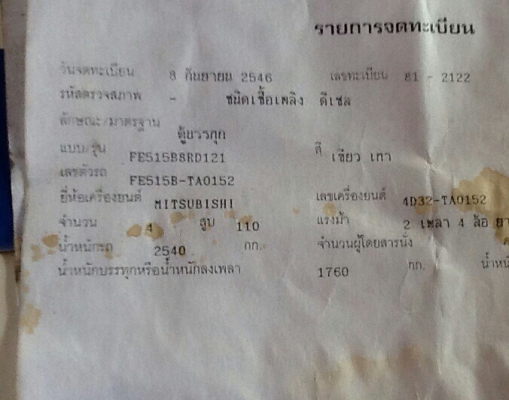 รายการจดทะเบียน
วันจดทะเบียน 8 กันยายน 2546 เลขทะเบียน 81 - 2122
รหัสตรวจสภาพ - ชนิดเชื้อเพลิง ดีเซล
ลักษณะ/มาตรฐาน ตู้บรรทุก
แบบ/รุ่น FE515B8RD121 สี เขียว เทา
เลขตัวรถ FE515B-TA0152
ยี่ห้อเครื่องยนต์ MITSUBISHI เลขเครื่องยนต์ 4D32-TA0152
จำนวน 4 สูบ 110 แรงม้า 2 เพลา 4 ล้อ ยา
น้ำหนักรถ 2540 กก. จำนวนผู้โดยสารนั่ง
น้ำหนักบรรทุกหรือน้ำหนักลงเพลา 1760 กก. น้ำหนั